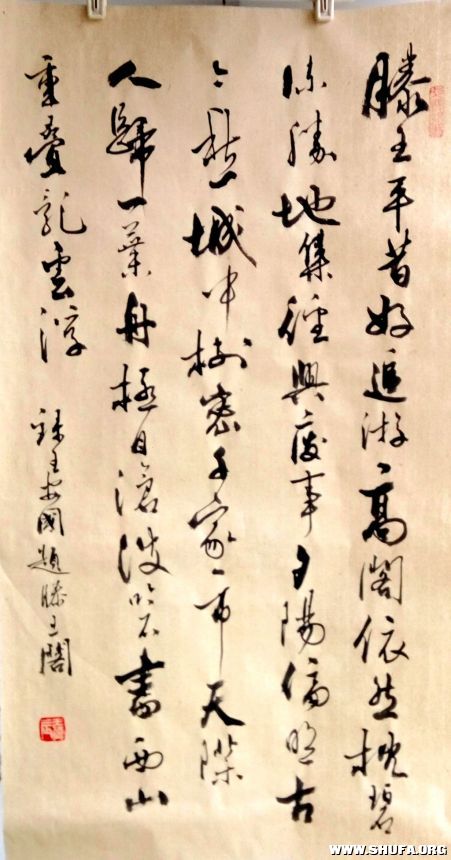 滕王平昔好追游高閣依然枕碧
流勝地集經興廢事夕陽偏照古
今愁城中樹密千家市天際
人歸一葉舟極目滄波吟不盡西山
重疊亂雲浮
錄王安國題滕王閣
WWW.SHUFA.ORG